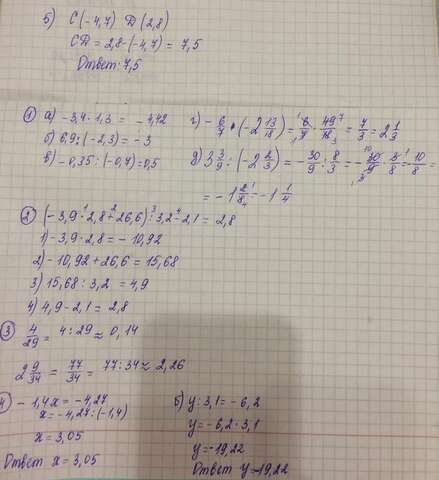 б) С(-4,7) D(2,8)
СD = 2,8-(-4,7) = 7,5
Ответ: 7,5
① а) -3,4 · 1,3 = -4,42
б) 6,9 : (-2,3) = -3
в) -0,35 : (-0,7) = 0,5
г) - 6/7 · (-2 13/18) = 6/7 · 49/18 = 7/3 = 2 1/3
д) 3 3/9 : (-2 2/3) = - 30/9 : 8/3 = - 30/9 · 3/8 = 10/8 =
= -1 2/8 = -1 1/4
② (-3,9 · 2,8 + 26,6) : 3,2 - 2,1 = 2,8
1) -3,9 · 2,8 = -10,92
2) -10,92 + 26,6 = 15,68
3) 15,68 : 3,2 = 4,9
4) 4,9 - 2,1 = 2,8
③ 4/29 = 4 : 29 ≈ 0,14
2 9/34 = 77/34 = 77 : 34 ≈ 2,26
④ -1,4х = -4,27
х = -4,27 : (-1,4)
х = 3,05
Ответ х = 3,05
б) у : 3,1 = -6,2
у = -6,2 · 3,1
у = -19,22
Ответ у = -19,22